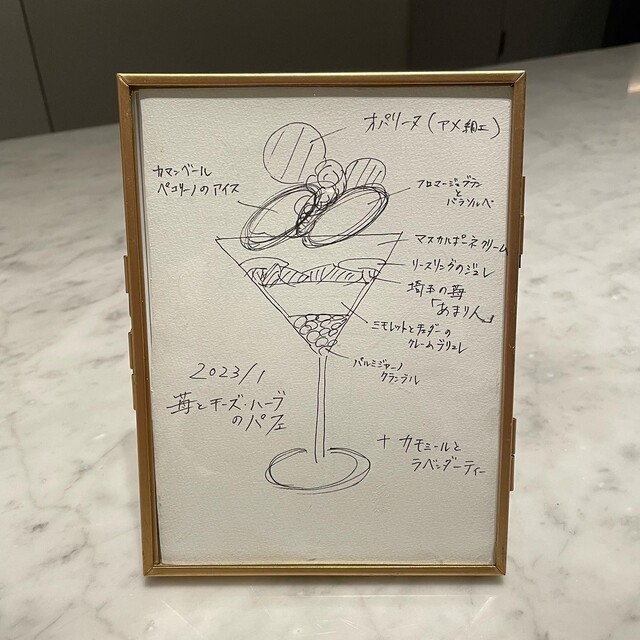 オパリーヌ(アメ細工)
カマンベール
ペコリーノのアイス
フロマージュブラン
とバラソルベ
マスカルポーネクリーム
リースリングのジュレ
埼玉の苺
「あまりん」
ミモレットとチェダーの
クレームブリュレ
パルミジャーノ
クランブル
2023/1
苺とチーズ・ハーブ
のパフェ
+ カモミールと
ラベンダーティー